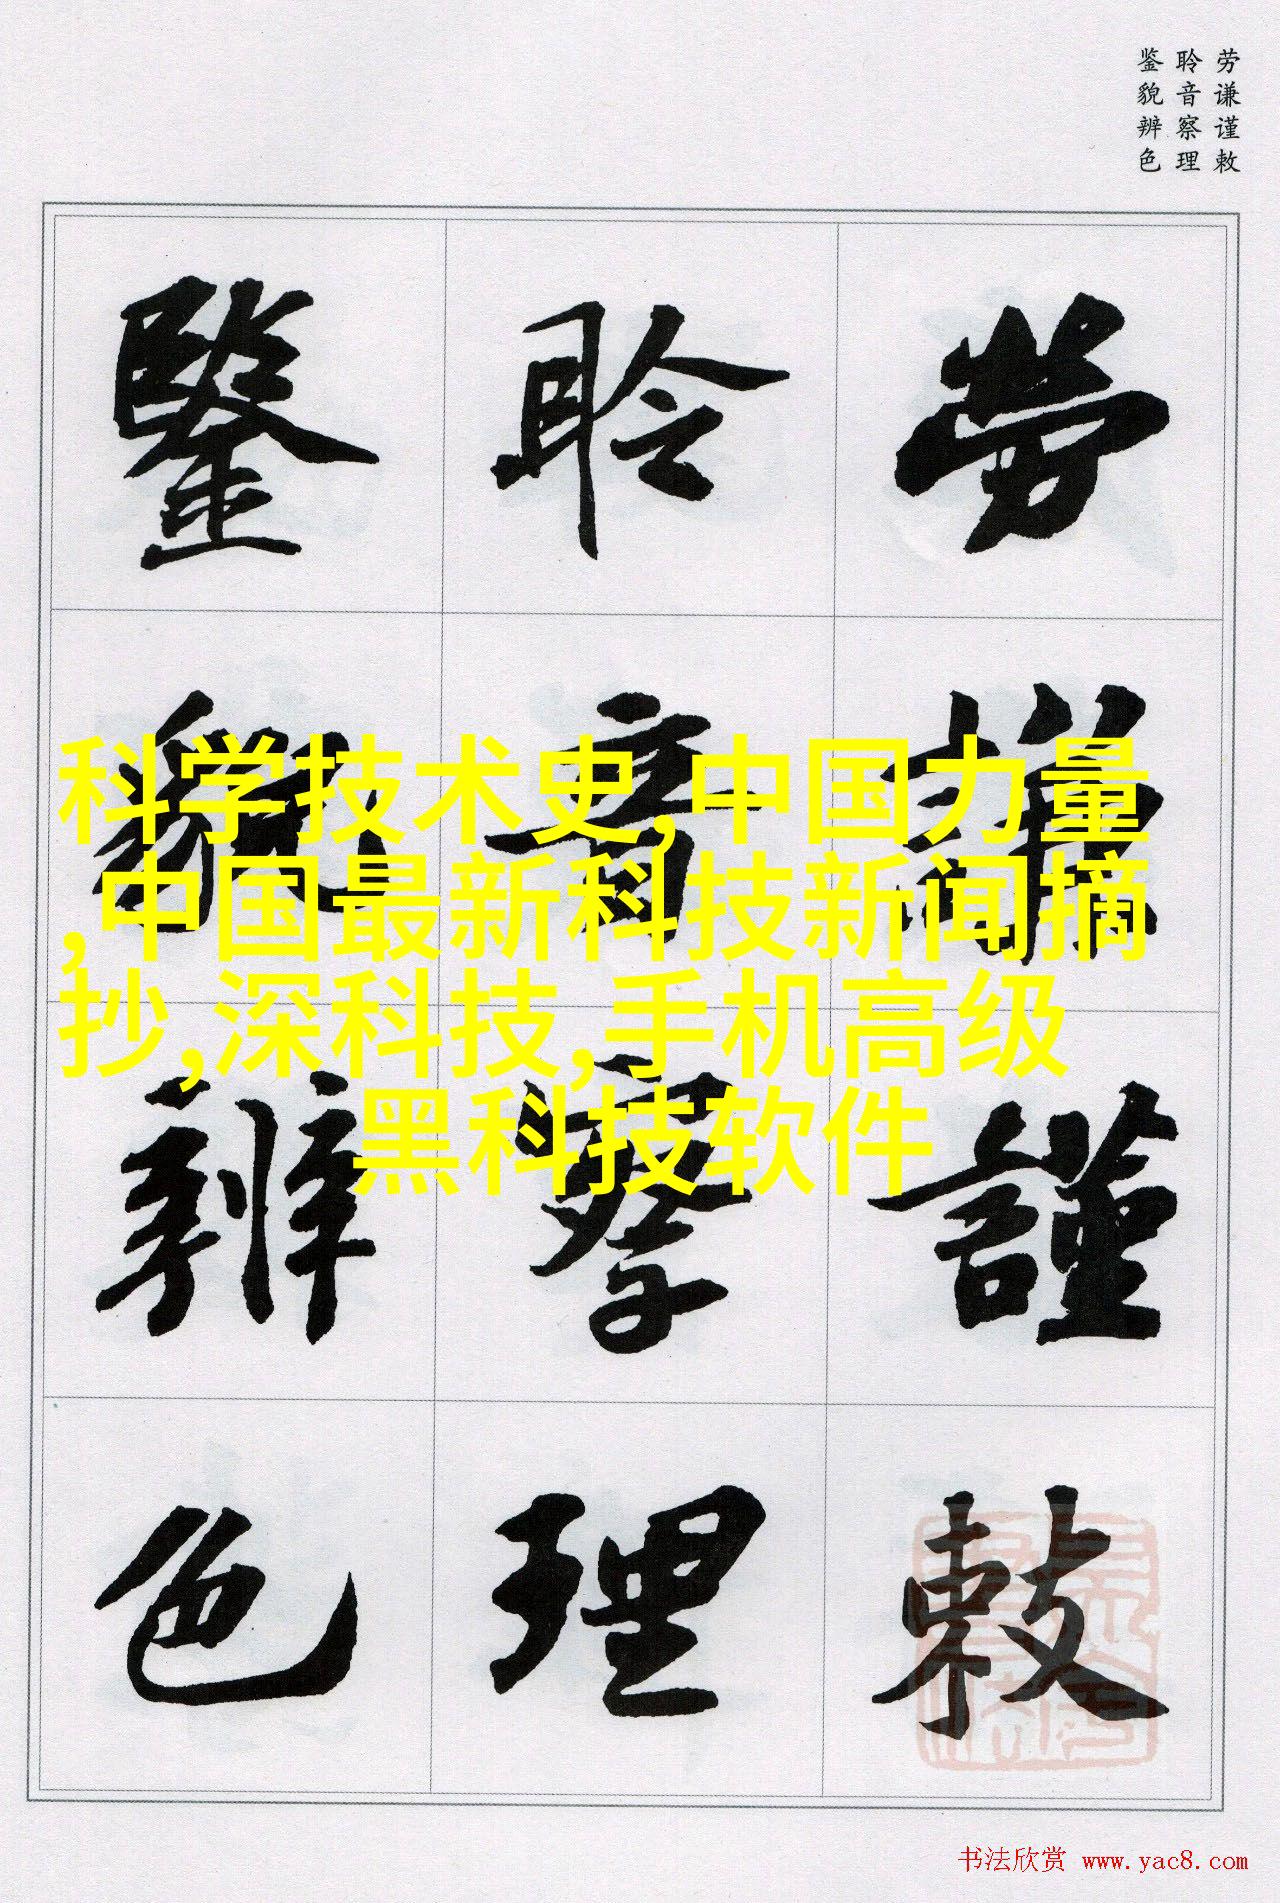 劳谦谨敕
聆音察理
鉴貌辨色
勞謙謹敕
聆音察理
鑒貌辨色
科学技术史,中国力量
,中国最新科技新闻摘
抄,深科技,手机高级
黑科技软件
书法欣赏 www.yac8.com